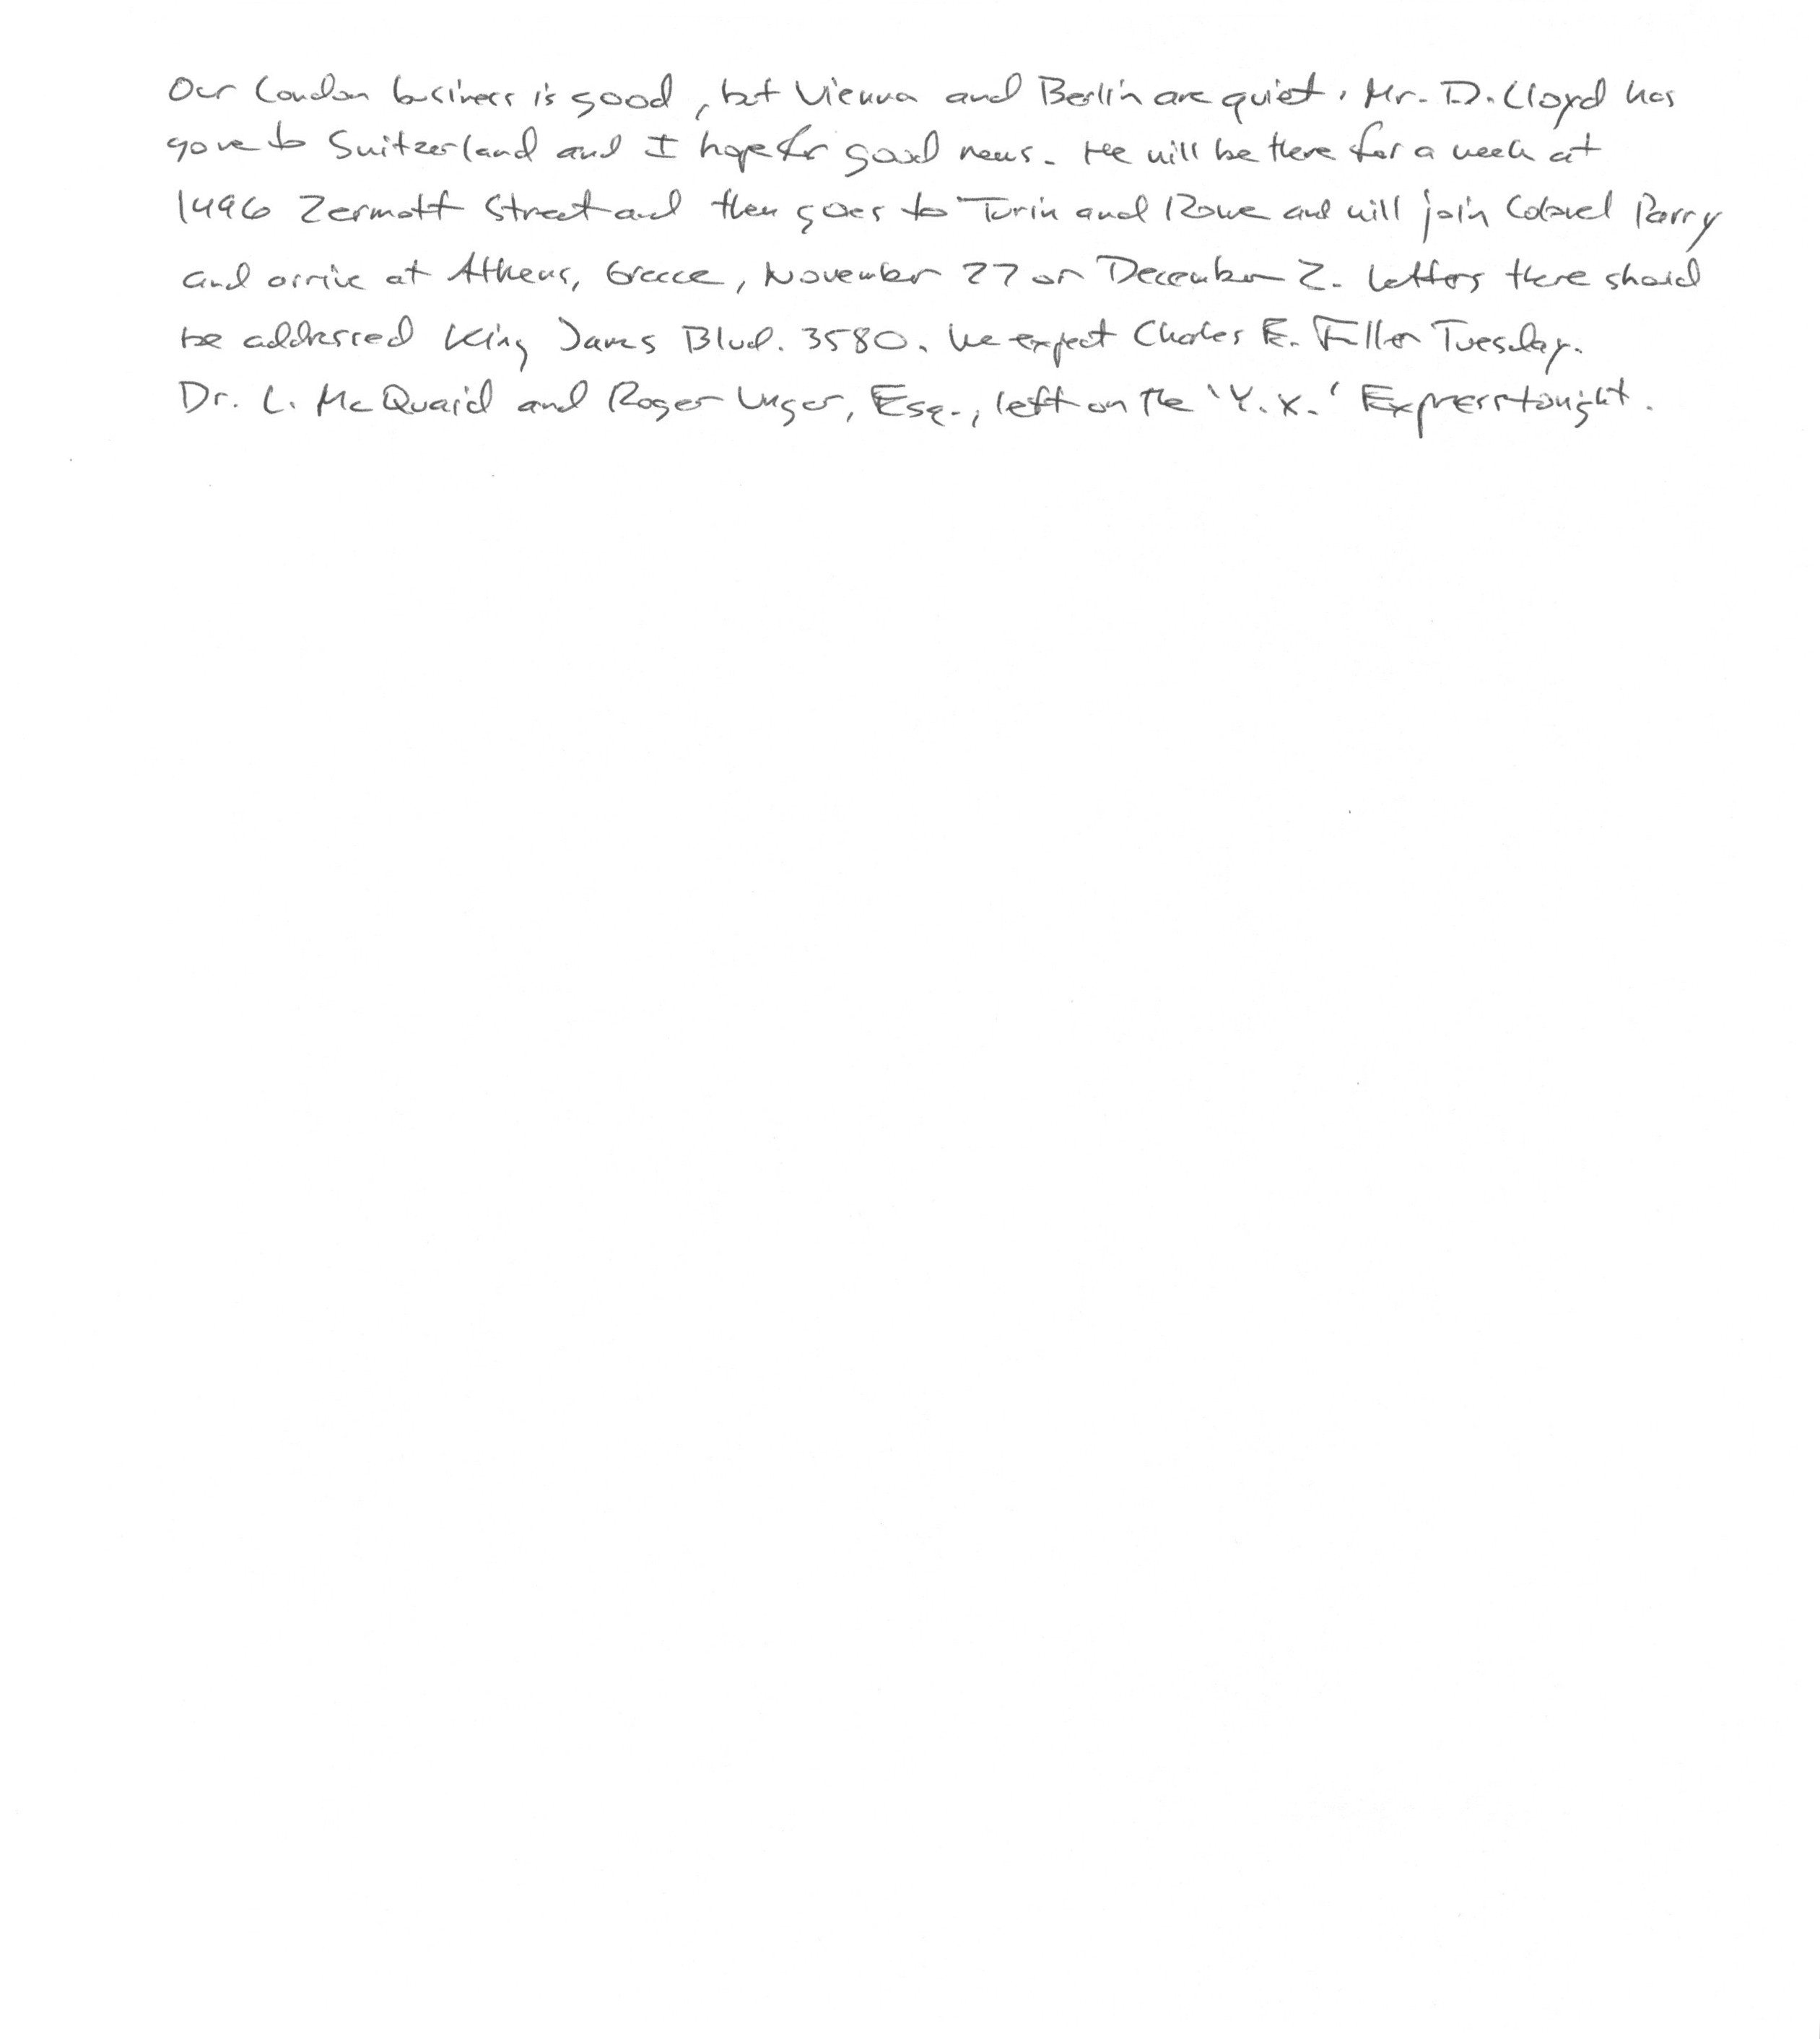 Our London business is good, but Vienna and Berlin are quiet. Mr. D. Lloyd has
gone to Switzerland and I hope for good news. He will be there for a week at
1496 Zermott Street and then goes to Turin and Rome and will join Colonel Parry
and arrive at Athens, Greece, November 27 or December 2. Letters there should
be addressed King James Blvd. 3580. We expect Charles E. Fuller Tuesday.
Dr. L. McQuaid and Roger Unger, Esq., left on the 'Y.X.' Express tonight.